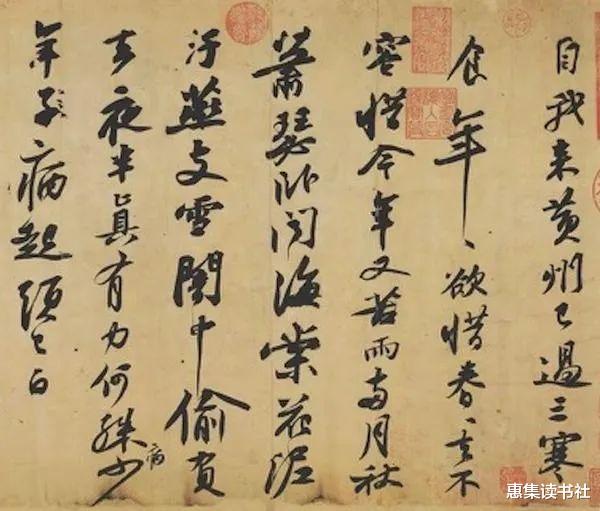 自我來黃州已過三寒
食年〻欲惜春〻去不
容惜今年又苦雨兩月秋
蕭瑟卧聞海棠花泥
汙燕支雪闇中偷負
去夜半真有力何殊病少
年子病起須已白
惠集读书社